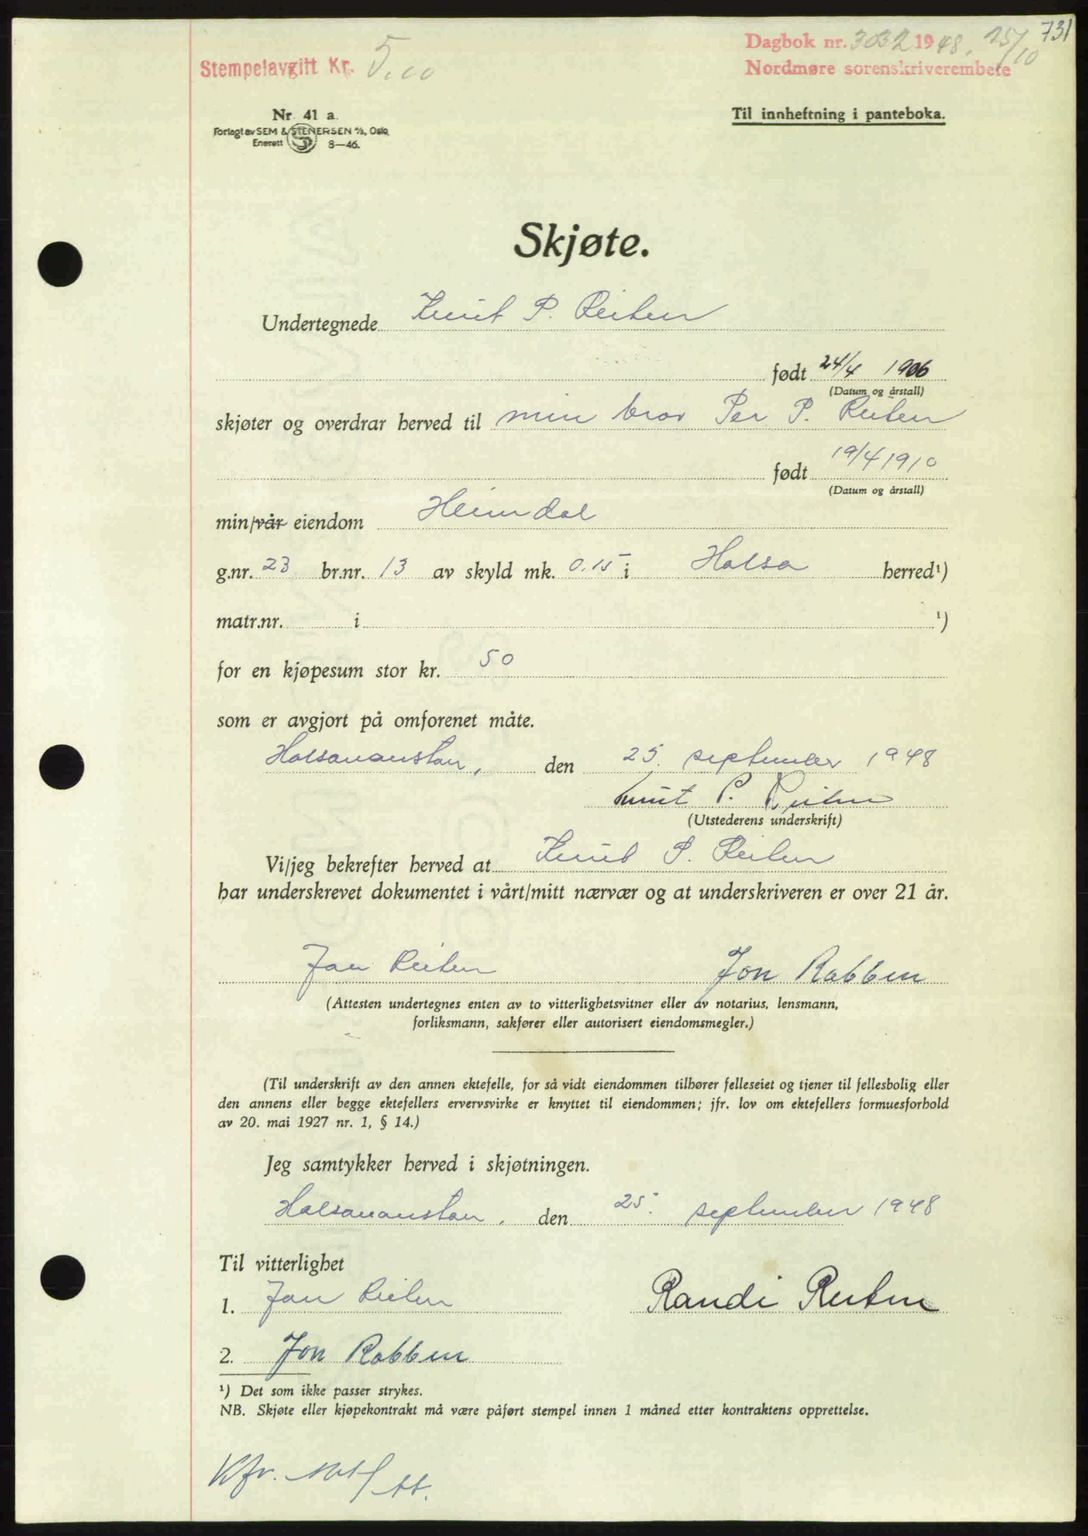 731
Dagbok nr. 3032 1948. 15/10
Stempelavgift Kr. 5,00
Nordmøre sorenskriverembete
Nr. 41 a.
Forlagt av SEM & STENERSEN A/S, Oslo
Enerett 8—46.
Til innheftning i panteboka.
Skjøte.
Undertegnede Knut P. Reiten
født 24/4 1906
(Datum og årstall)
skjøter og overdrar herved til min bror Per P. Reiten
født 19/4 1910
(Datum og årstall)
min/vår eiendom Heimdal
g.nr. 23 br.nr. 13 av skyld mk. 0.15 i Halsa herred¹)
matr.nr. i ¹)
for en kjøpesum stor kr. 50
som er avgjort på omforenet måte.
Halsanaustan, den 25. september 1948
Knut P. Reiten
(Utstederens underskrift)
Vi/jeg bekrefter herved at Knut P. Reiten
har underskrevet dokumentet i vårt/mitt nærvær og at underskriveren er over 21 år.
Jan Reiten Jon Rabben
(Attesten undertegnes enten av to vitterlighetsvitner eller av notarius, lensmann,
forliksmann, sakfører eller autorisert eiendomsmegler.)
(Til underskrift av den annen ektefelle, for så vidt eiendommen tilhører felleseiet og tjener til fellesbolig eller
den annens eller begge ektefellers ervervsvirke er knyttet til eiendommen; jfr. lov om ektefellers formuesforhold
av 20. mai 1927 nr. 1, § 14.)
Jeg samtykker herved i skjøtningen.
Halsanaustan, den 25. september 1948
Til vitterlighet
1. Jan Reiten Randi Reiten
2. Jon Rabben
¹) Det som ikke passer strykes.
NB. Skjøte eller kjøpekontrakt må være påført stempel innen 1 måned etter kontraktens opprettelse.
Kfr.